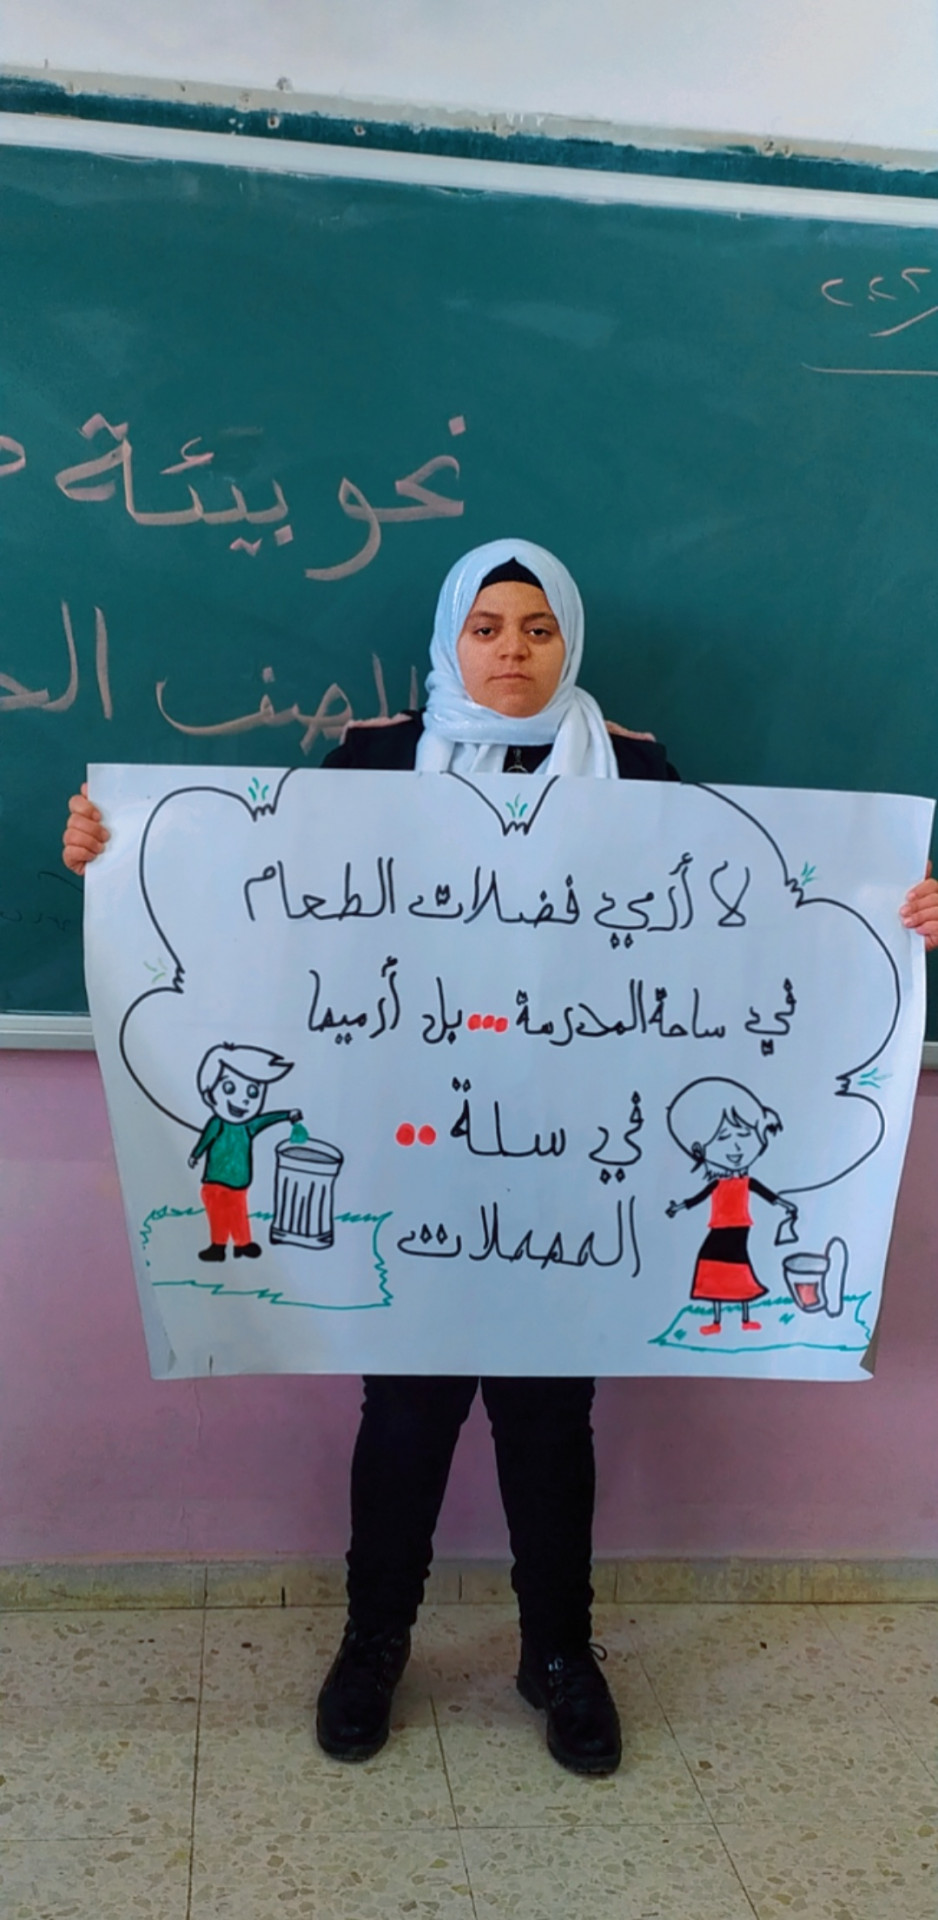 ٢٠٢٢
نحو بيئة
للصف
لا أرمي فضلات الطعام
في ساحة المدرسة ... بل أرميها
في سلة ..
المهملات